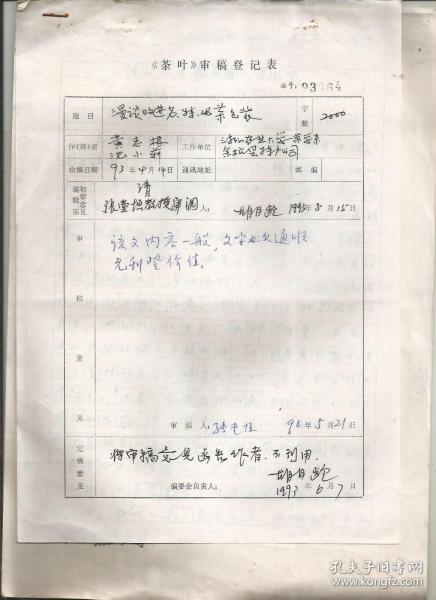 《茶叶》审稿登记表
编号:
题目 漫谈 名、特、优 茶包装
字数 2000
作(译)者 黄志根 沈小
工作单位 浙江农业大学茶学系
公司
收稿日期 93年4月14日 通讯地址 邮编
编辑部初审意见 请
教授审阅 人: 1993年5月15日
审稿意见
该文内容一般,文字也欠通顺
无刊登价值。
审稿人: 93年5月21日
定稿意见
将审稿意见函告作者,不刊用。
编委会负责人:
1993年6月7日
孔夫子旧书网
www.kongfz.com